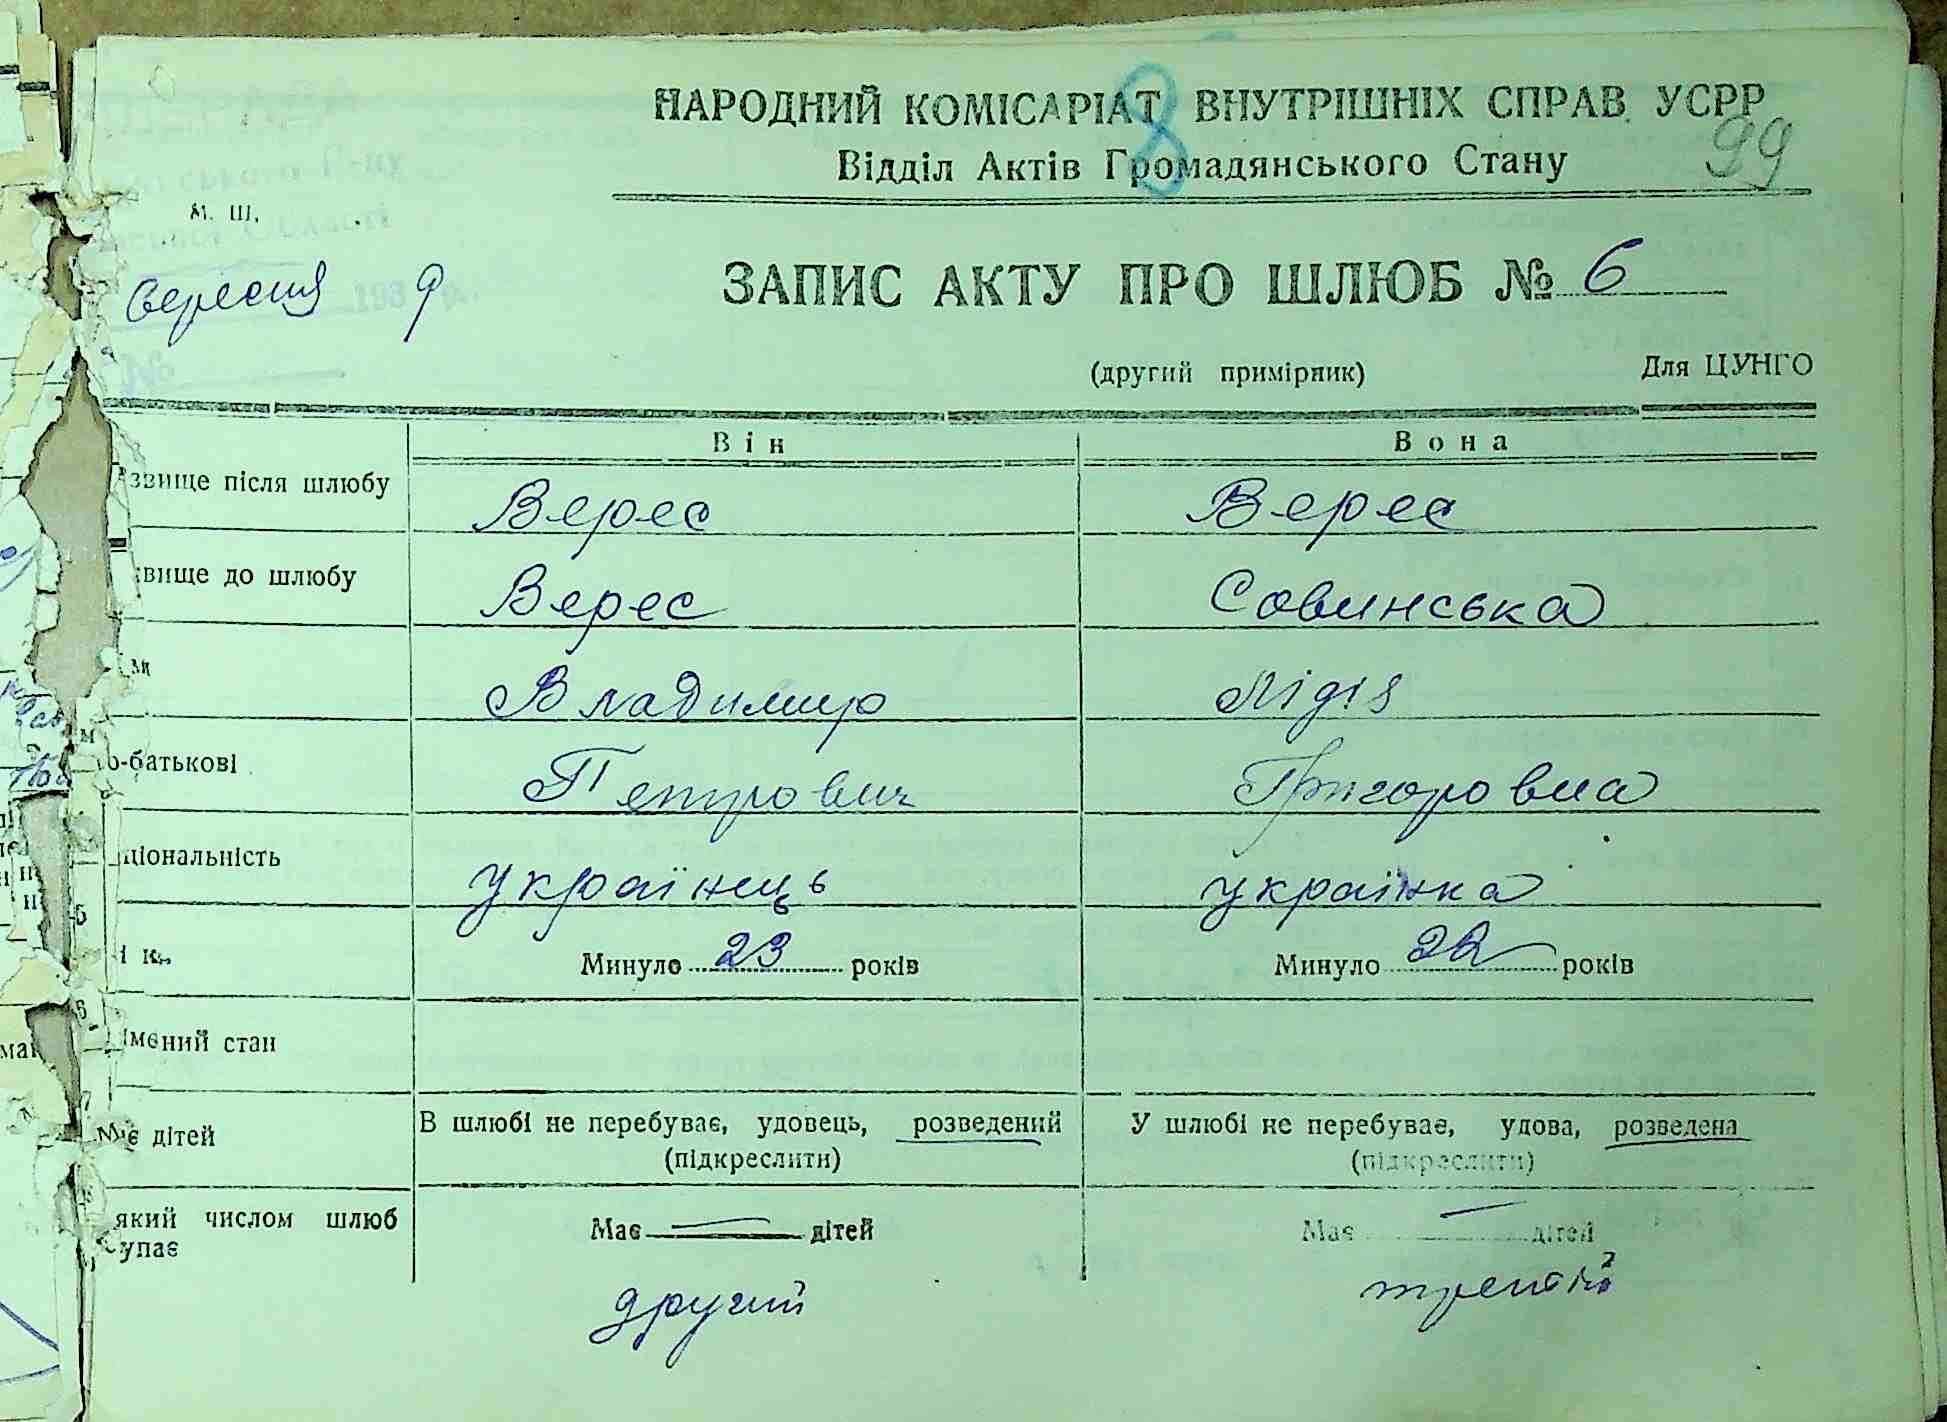 НАРОДНИЙ КОМІСАРІАТ ВНУТРІШНІХ СПРАВ УСРР
8
99
Відділ Актів Громадянського Стану
М. Ш.
Вересня 1939 р.
№
ЗАПИС АКТУ ПРО ШЛЮБ № 6
(другий примірник) Для ЦУНГО
Він Вона
звище після шлюбу Верес Верес
вище до шлюбу Верес Совинська
Владимир Лідія
о-батькові Петрович Григоровна
ціональність українець українка
Минуло 23 років Минуло 22 років
мений стан
має дітей В шлюбі не перебуває, удовець, розведений У шлюбі не перебуває, удова, розведена
(підкреслити) (підкреслити)
який числом шлюб Має — дітей Має — дітей
упає
другий третій